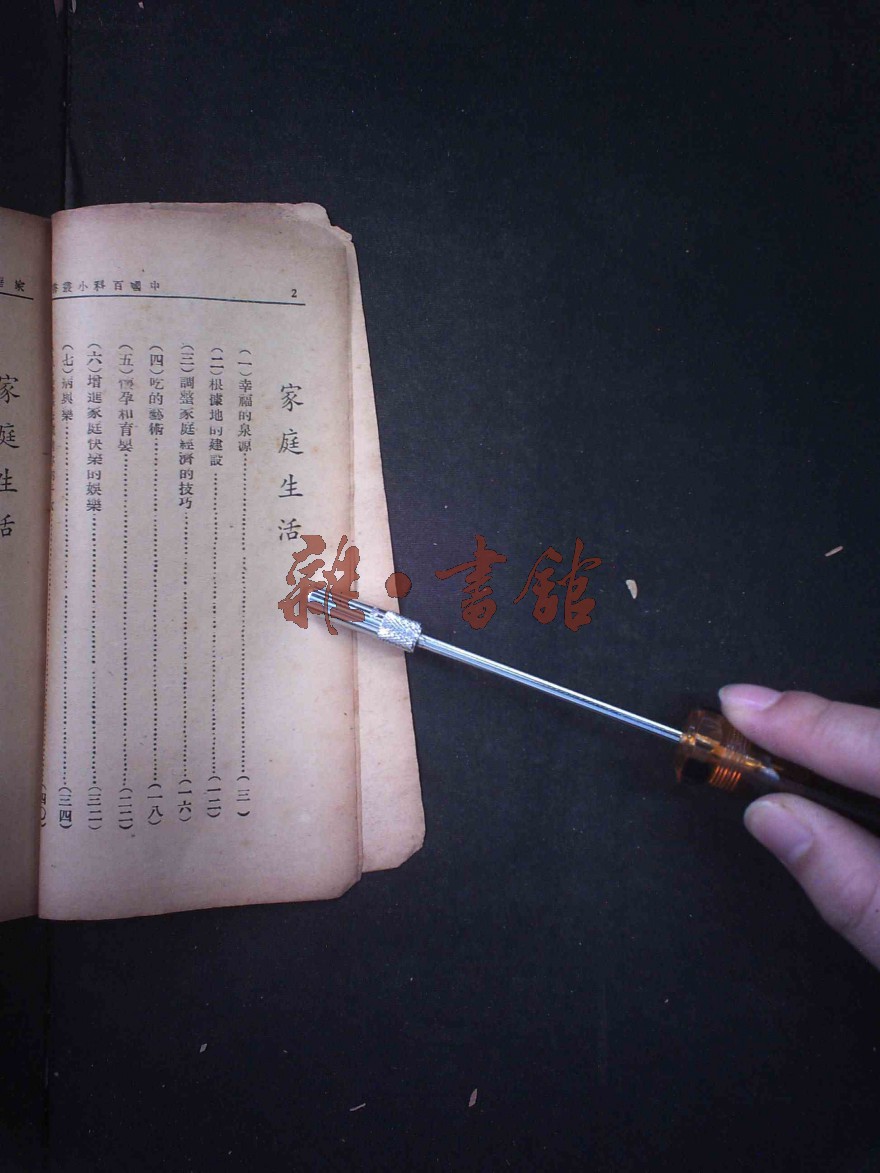 中國百科小叢書
2
家庭生活
（一）幸福的泉源……（三）
（二）根據地的建設……（一二）
（三）調整家庭經濟的技巧……（一六）
（四）吃的藝術……（一八）
（五）懷孕和育嬰……（二二）
（六）增進家庭快樂的娛樂……（三二）
（七）病與樂……（三四）
（四〇）
家庭生活
雜·書館